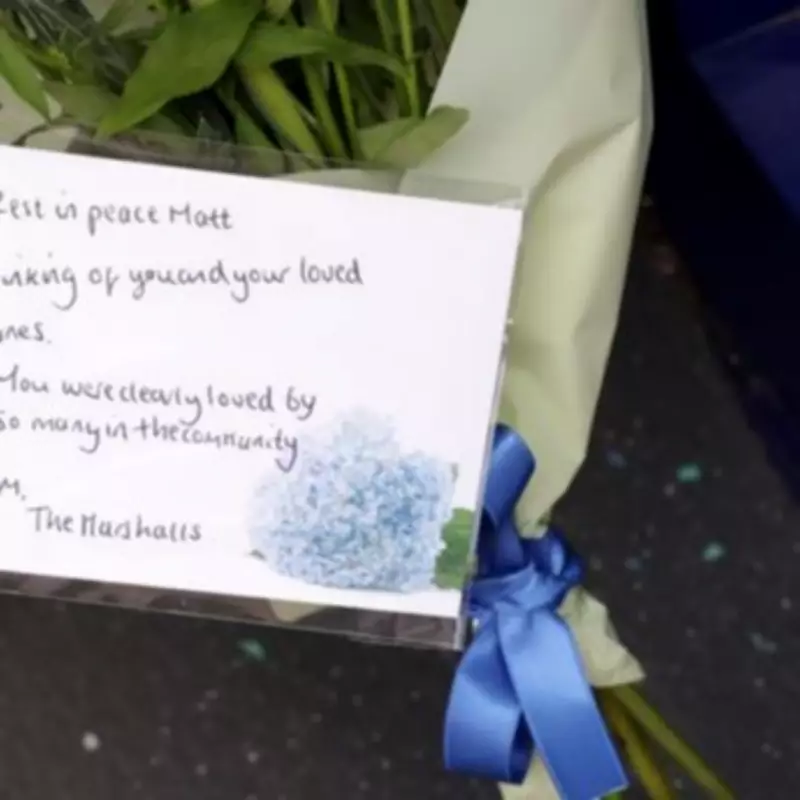 Rest in peace Matt
inking of you and your loved
ones.
You were clearly loved by
so many in the community
M.
The Marshalls